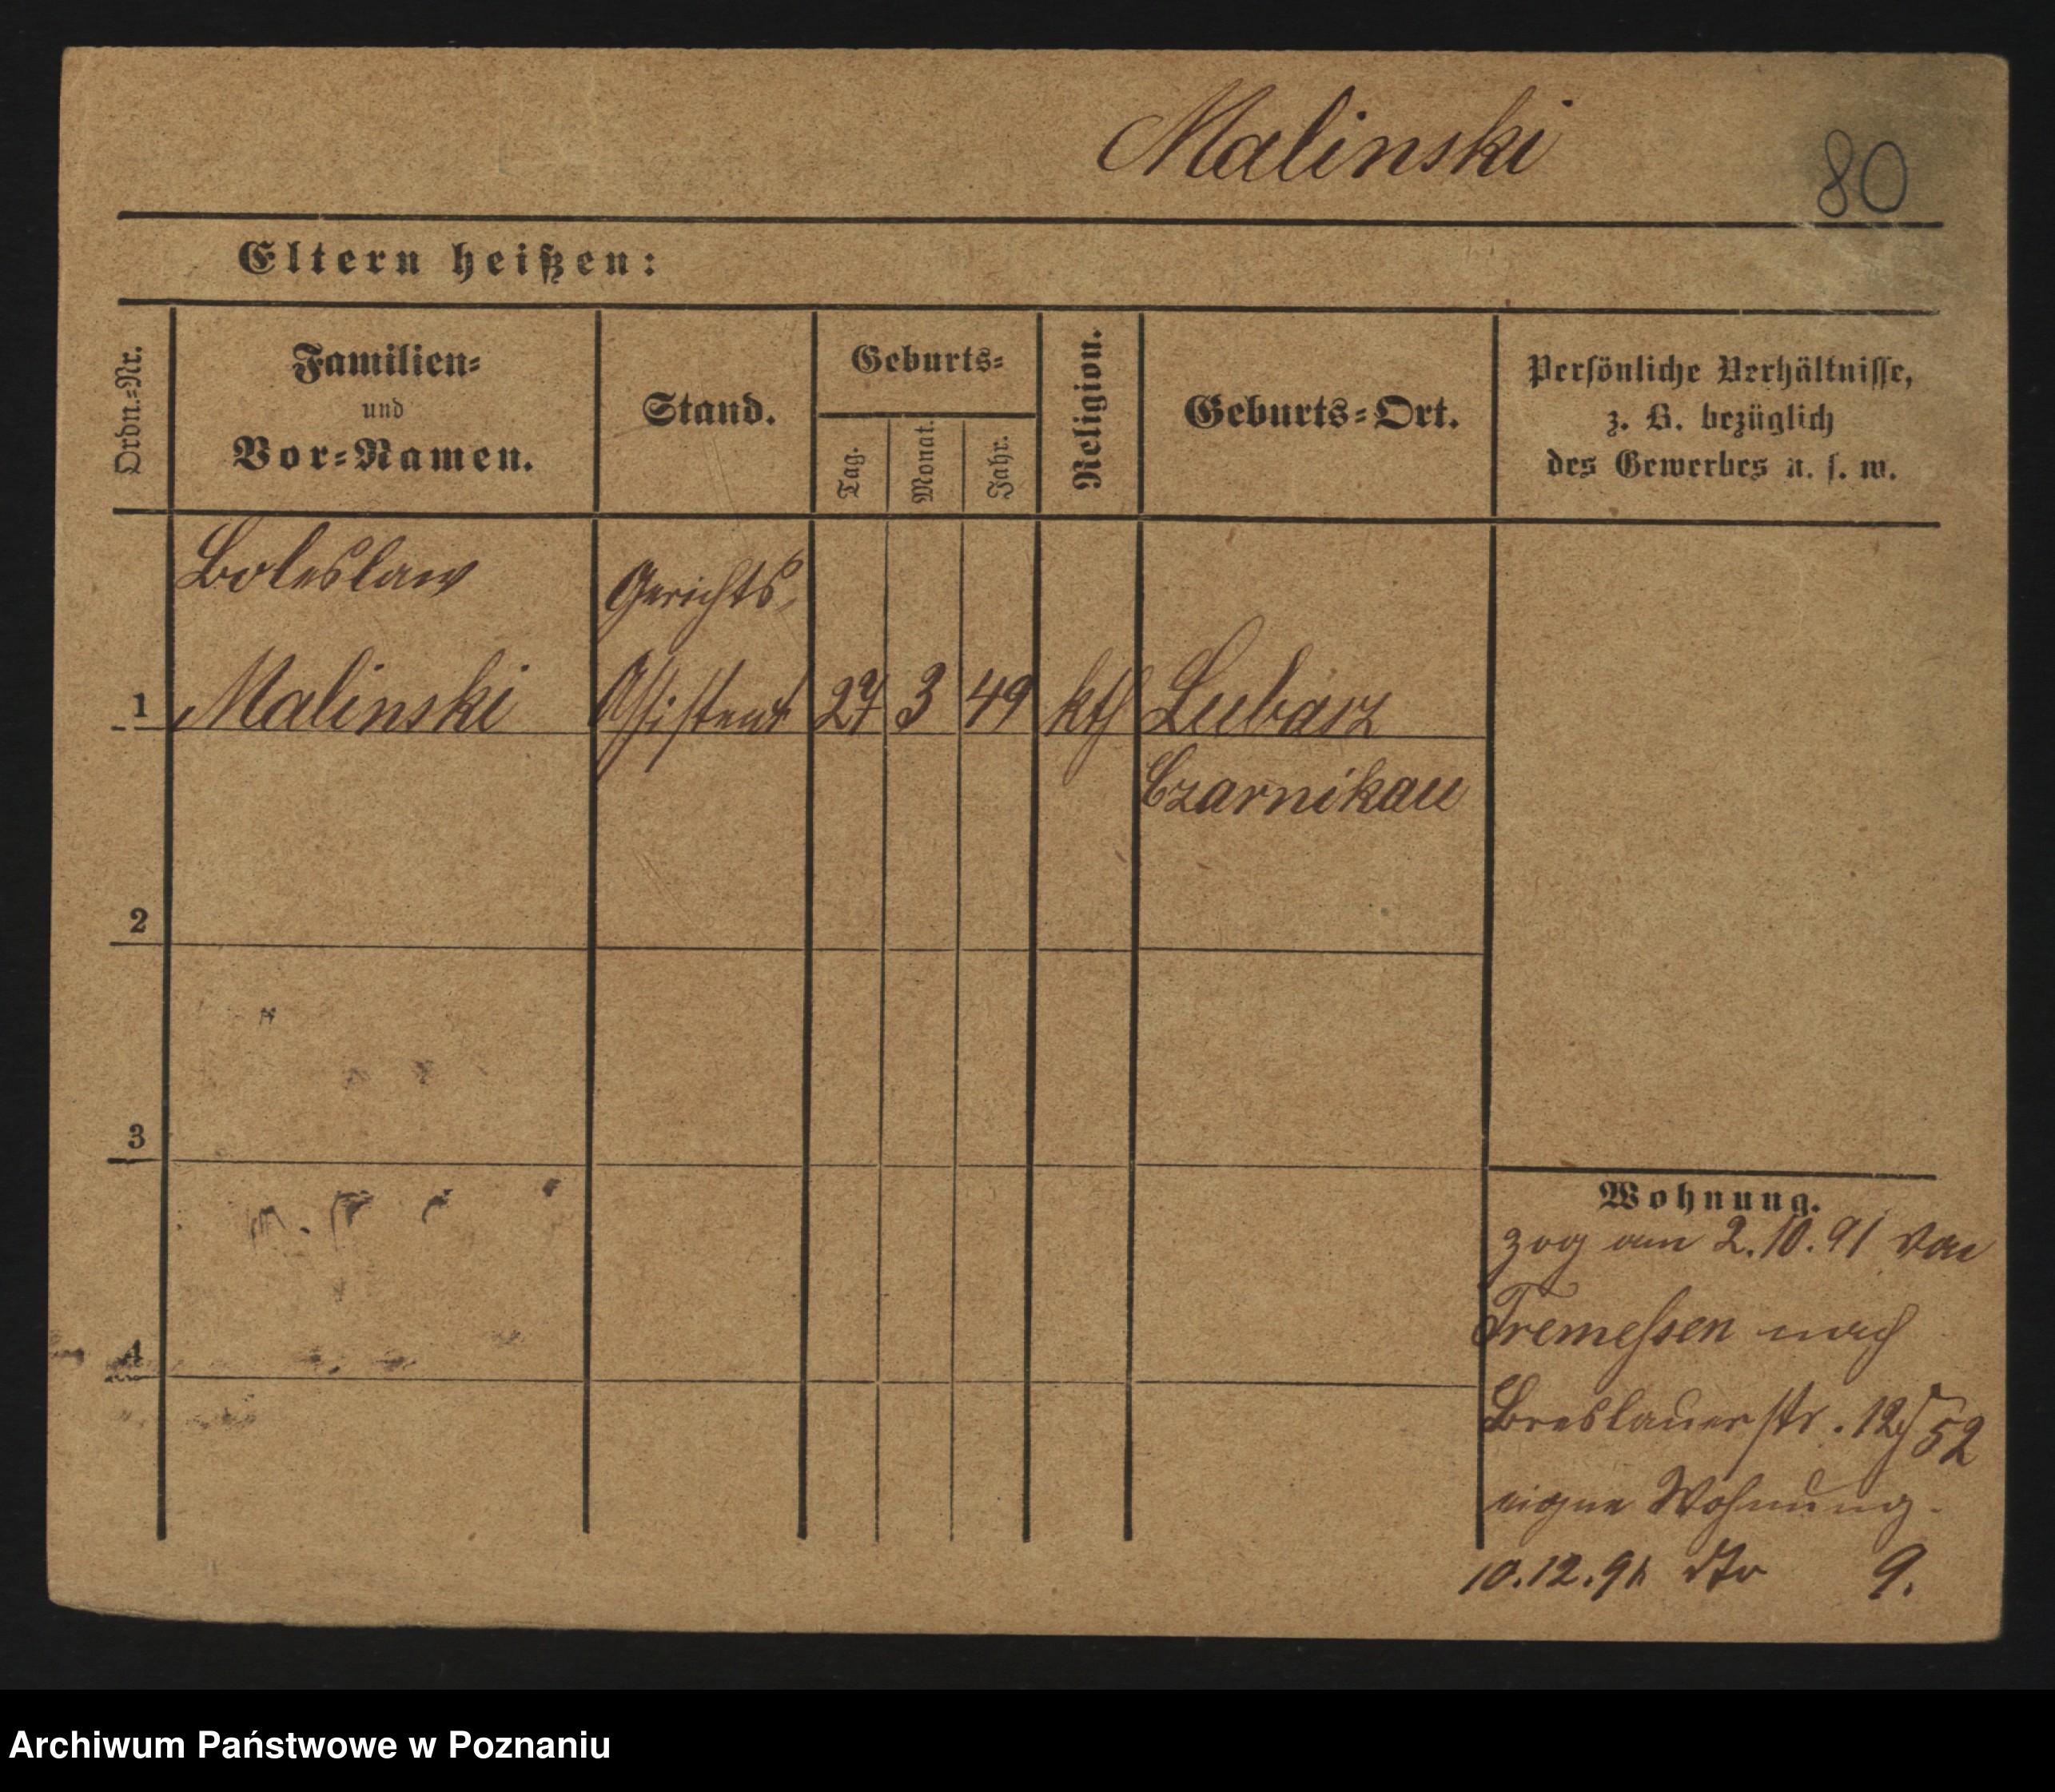 Malinski
80
Eltern heißen:
Ordn.-Nr.
Familien-
und
Vor-Namen.
Stand.
Geburts-
Tag.
Monat.
Jahr.
Religion.
Geburts-Ort.
Persönliche Verhältnisse,
z. B. bezüglich
des Gewerbes u. s. w.
Boleslaw
Gerichts-
1 Malinski Assistent 27 3 49 kth Lubasz
Czarnikau
2
3
4
Wohnung.
zog am 2.10.91 von
Tremessen nach
Breslauerstr. 12/52
eigne Wohnung.
10.12.91 dto 9.
Archiwum Państwowe w Poznaniu